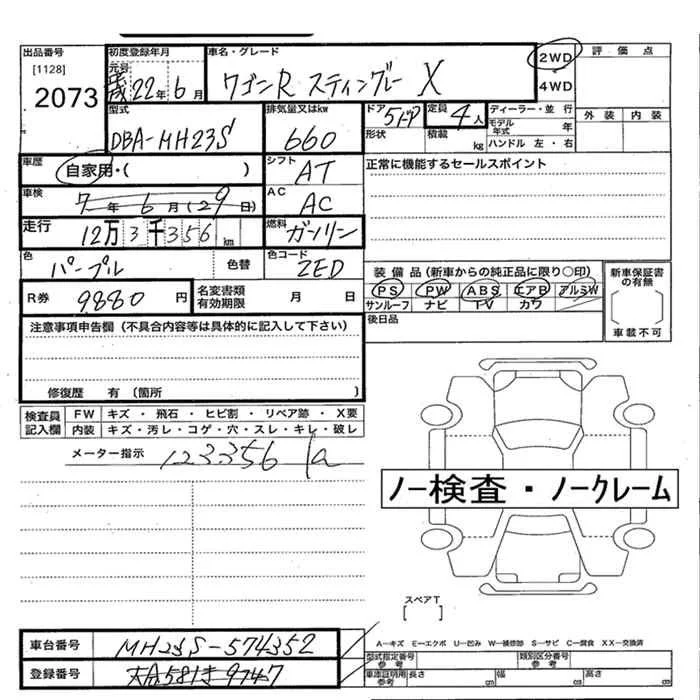 出品番号
[1128]
2073
初度登録年月
元号
平成22年6月
車名・グレード
ワゴンR スティングレー X
2WD
4WD
評価点
外装 内装
型式
DBA-MH23S
排気量又はkw
660
ドア 5ドア
形状
定員 4人
積載 kg
ディーラー・並行
モデル年式 年
ハンドル 左・右
車歴
自家用・( )
シフト
AT
正常に機能するセールスポイント
車検
7年6月(29日)
AC
AC
走行
12万3千356km
燃料
ガソリン
色
パープル
色替
色コード
ZED
装備品(新車からの純正品に限り○印)
PS PW ABS エアB アルミW
サンルーフ ナビ TV カワ
新車保証書の有無
[ ]
車載不可
R券
9880円
名変書類有効期限 月 日
後日品
注意事項申告欄(不具合内容等は具体的に記入して下さい)
修復歴 有(箇所 )
検査員記入欄
FW キズ・飛石・ヒビ割・リペア跡・X要
内装 キズ・汚レ・コゲ・穴・スレ・キレ・破レ
メーター指示
123356
ノー検査・ノークレーム
スペアT
[ ]
車台番号
MH23S-574352
登録番号
A-キズ E-エクボ U-凹み W-補修跡 S-サビ C-腐食 XX-交換済
型式指定番号参考
類別区分番号参考
車庫証明用参考 長さ cm 幅 cm 高さ cm